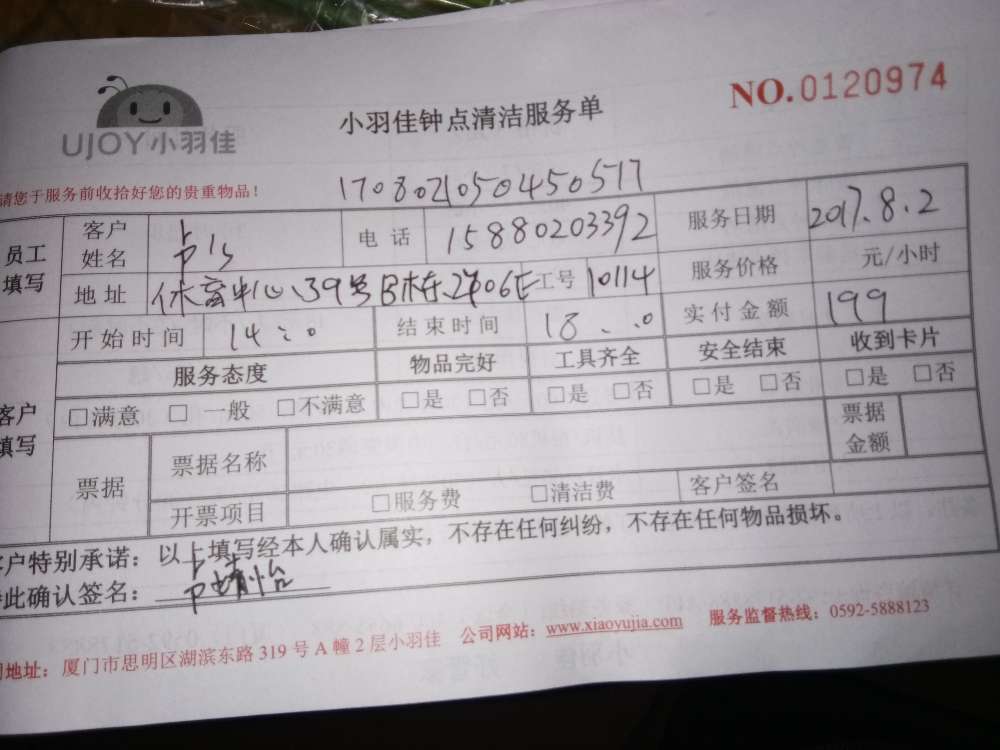 UJOY小羽佳
小羽佳钟点清洁服务单
NO.0120974
请您于服务前收拾好您的贵重物品！
1708021050450517
员工填写 客户姓名 电话 15880203392 服务日期 2017.8.2
地址 体育中心、39号B栋 工号 10114 服务价格 元/小时
开始时间 14:0 结束时间 18:0 实付金额 199
客户填写 服务态度 物品完好 工具齐全 安全结束 收到卡片
□满意 □一般 □不满意 □是 □否 □是 □否 □是 □否 □是 □否
票据 票据名称 票据金额
开票项目 □服务费 □清洁费 客户签名
客户特别承诺：以上填写经本人确认属实，不存在任何纠纷，不存在任何物品损坏。
此确认签名：
地址：厦门市思明区湖滨东路319号A幢2层小羽佳 公司网站：www.xiaoyujia.com 服务监督热线：0592-5888123